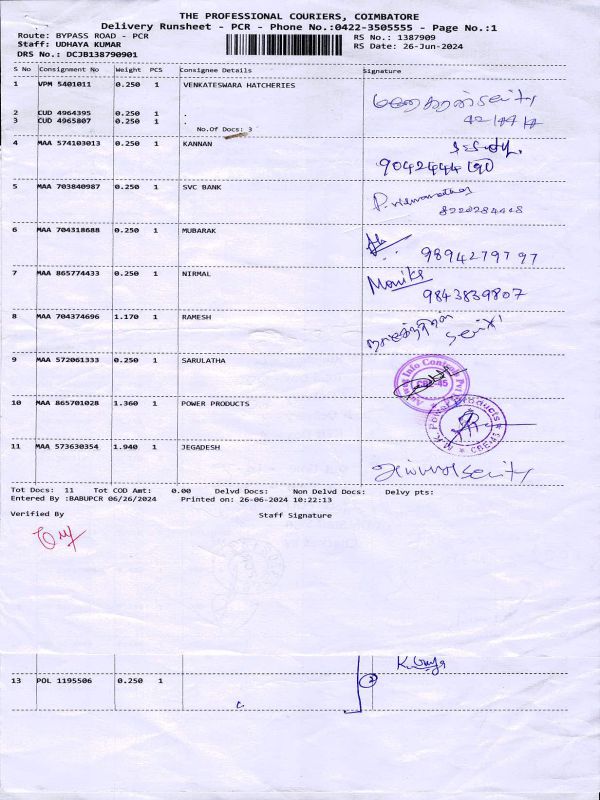 THE PROFESSIONAL COURIERS, COIMBATORE
Delivery Runsheet - PCR - Phone No.:0422-3505555 - Page No.:1
Route: BYPASS ROAD - PCR RS No.: 1387909
Staff: UDHAYA KUMAR RS Date: 26-Jun-2024
DRS No.: DCJB138790901
S No Consignment No Weight PCS Consignee Details Signature
1 VPM 5401011 0.250 1 VENKATESWARA HATCHERIES
2 CUD 4964395 0.250 1 .
3 CUD 4965807 0.250 1 .
No.Of Docs: 3
4 MAA 574103013 0.250 1 KANNAN
5 MAA 703840987 0.250 1 SVC BANK
8220284448
6 MAA 704318688 0.250 1 MUBARAK
9894279797
7 MAA 865774433 0.250 1 NIRMAL
Monika
9843839807
8 MAA 704374696 1.170 1 RAMESH
9 MAA 572061333 0.250 1 SARULATHA
Info Contros Pvt
CBE-45
10 MAA 865701028 1.360 1 POWER PRODUCTS
M.K. Power Products
CBE-45
11 MAA 573630354 1.940 1 JEGADESH
Tot Docs: 11 Tot COD Amt: 0.00 Delvd Docs: Non Delvd Docs: Delvy pts:
Entered By :BABUPCR 06/26/2024 Printed on: 26-06-2024 10:22:13
Verified By Staff Signature
13 POL 1195506 0.250 1
2